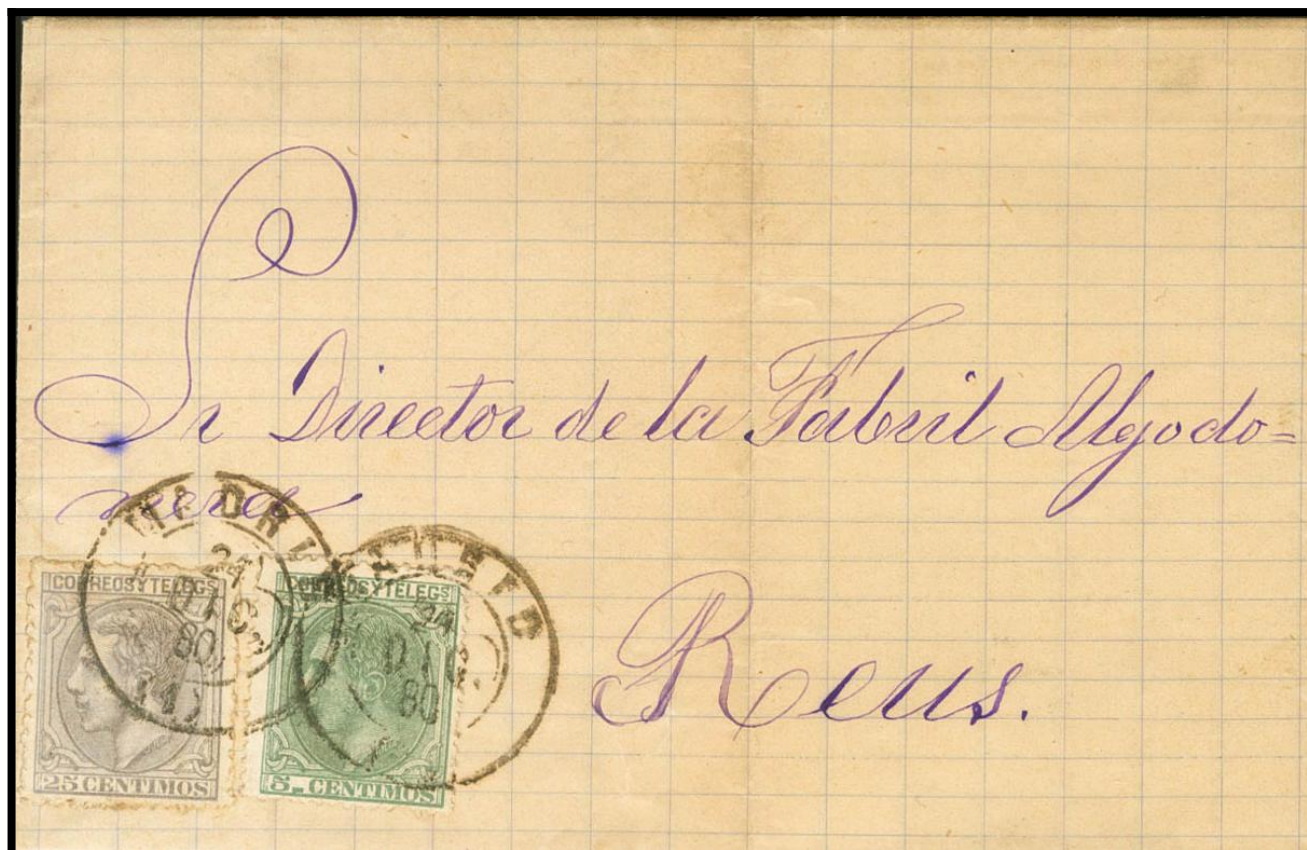 Sr Director de la Fabril Algodo=
nera
Reus.
MADRID
24
DIC
80
(4)
MADRID
24
DIC.
80
CORREOS Y TELEGS
25 CENTIMOS
CORREOS Y TELEGS
5_ CENTIMOS